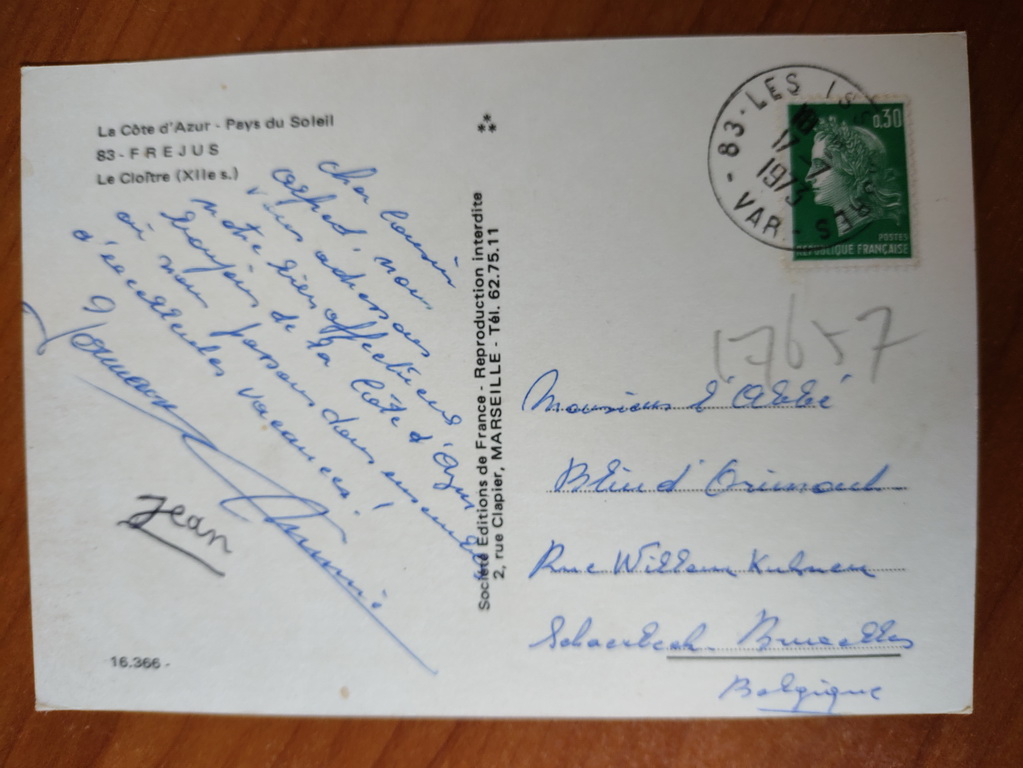 La Côte d'Azur - Pays du Soleil
83 - FREJUS
Le Cloître (XIIe s.)
Cher Cousin
nous
vous adressons
notre bien affectueux
de la Côte d'Azur
où nous passons dans
d'excellentes vacances!
Jean
16.366 -
Société Editions de France - Reproduction interdite
2, rue Clapier, MARSEILLE - Tél. 62.75.11
83 - LES ISSAMBRES
18
17 - 7
1973
VAR
0,30
POSTES
REPUBLIQUE FRANÇAISE
17657
Monsieur l'Abbé
Blin d'
Rue Willem Kuhnen
Schaerbeek. Bruxelles
Belgique